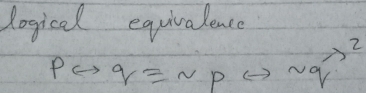 logical equivalence
p ↔ q ≡ ~ p ↔ ~q ?